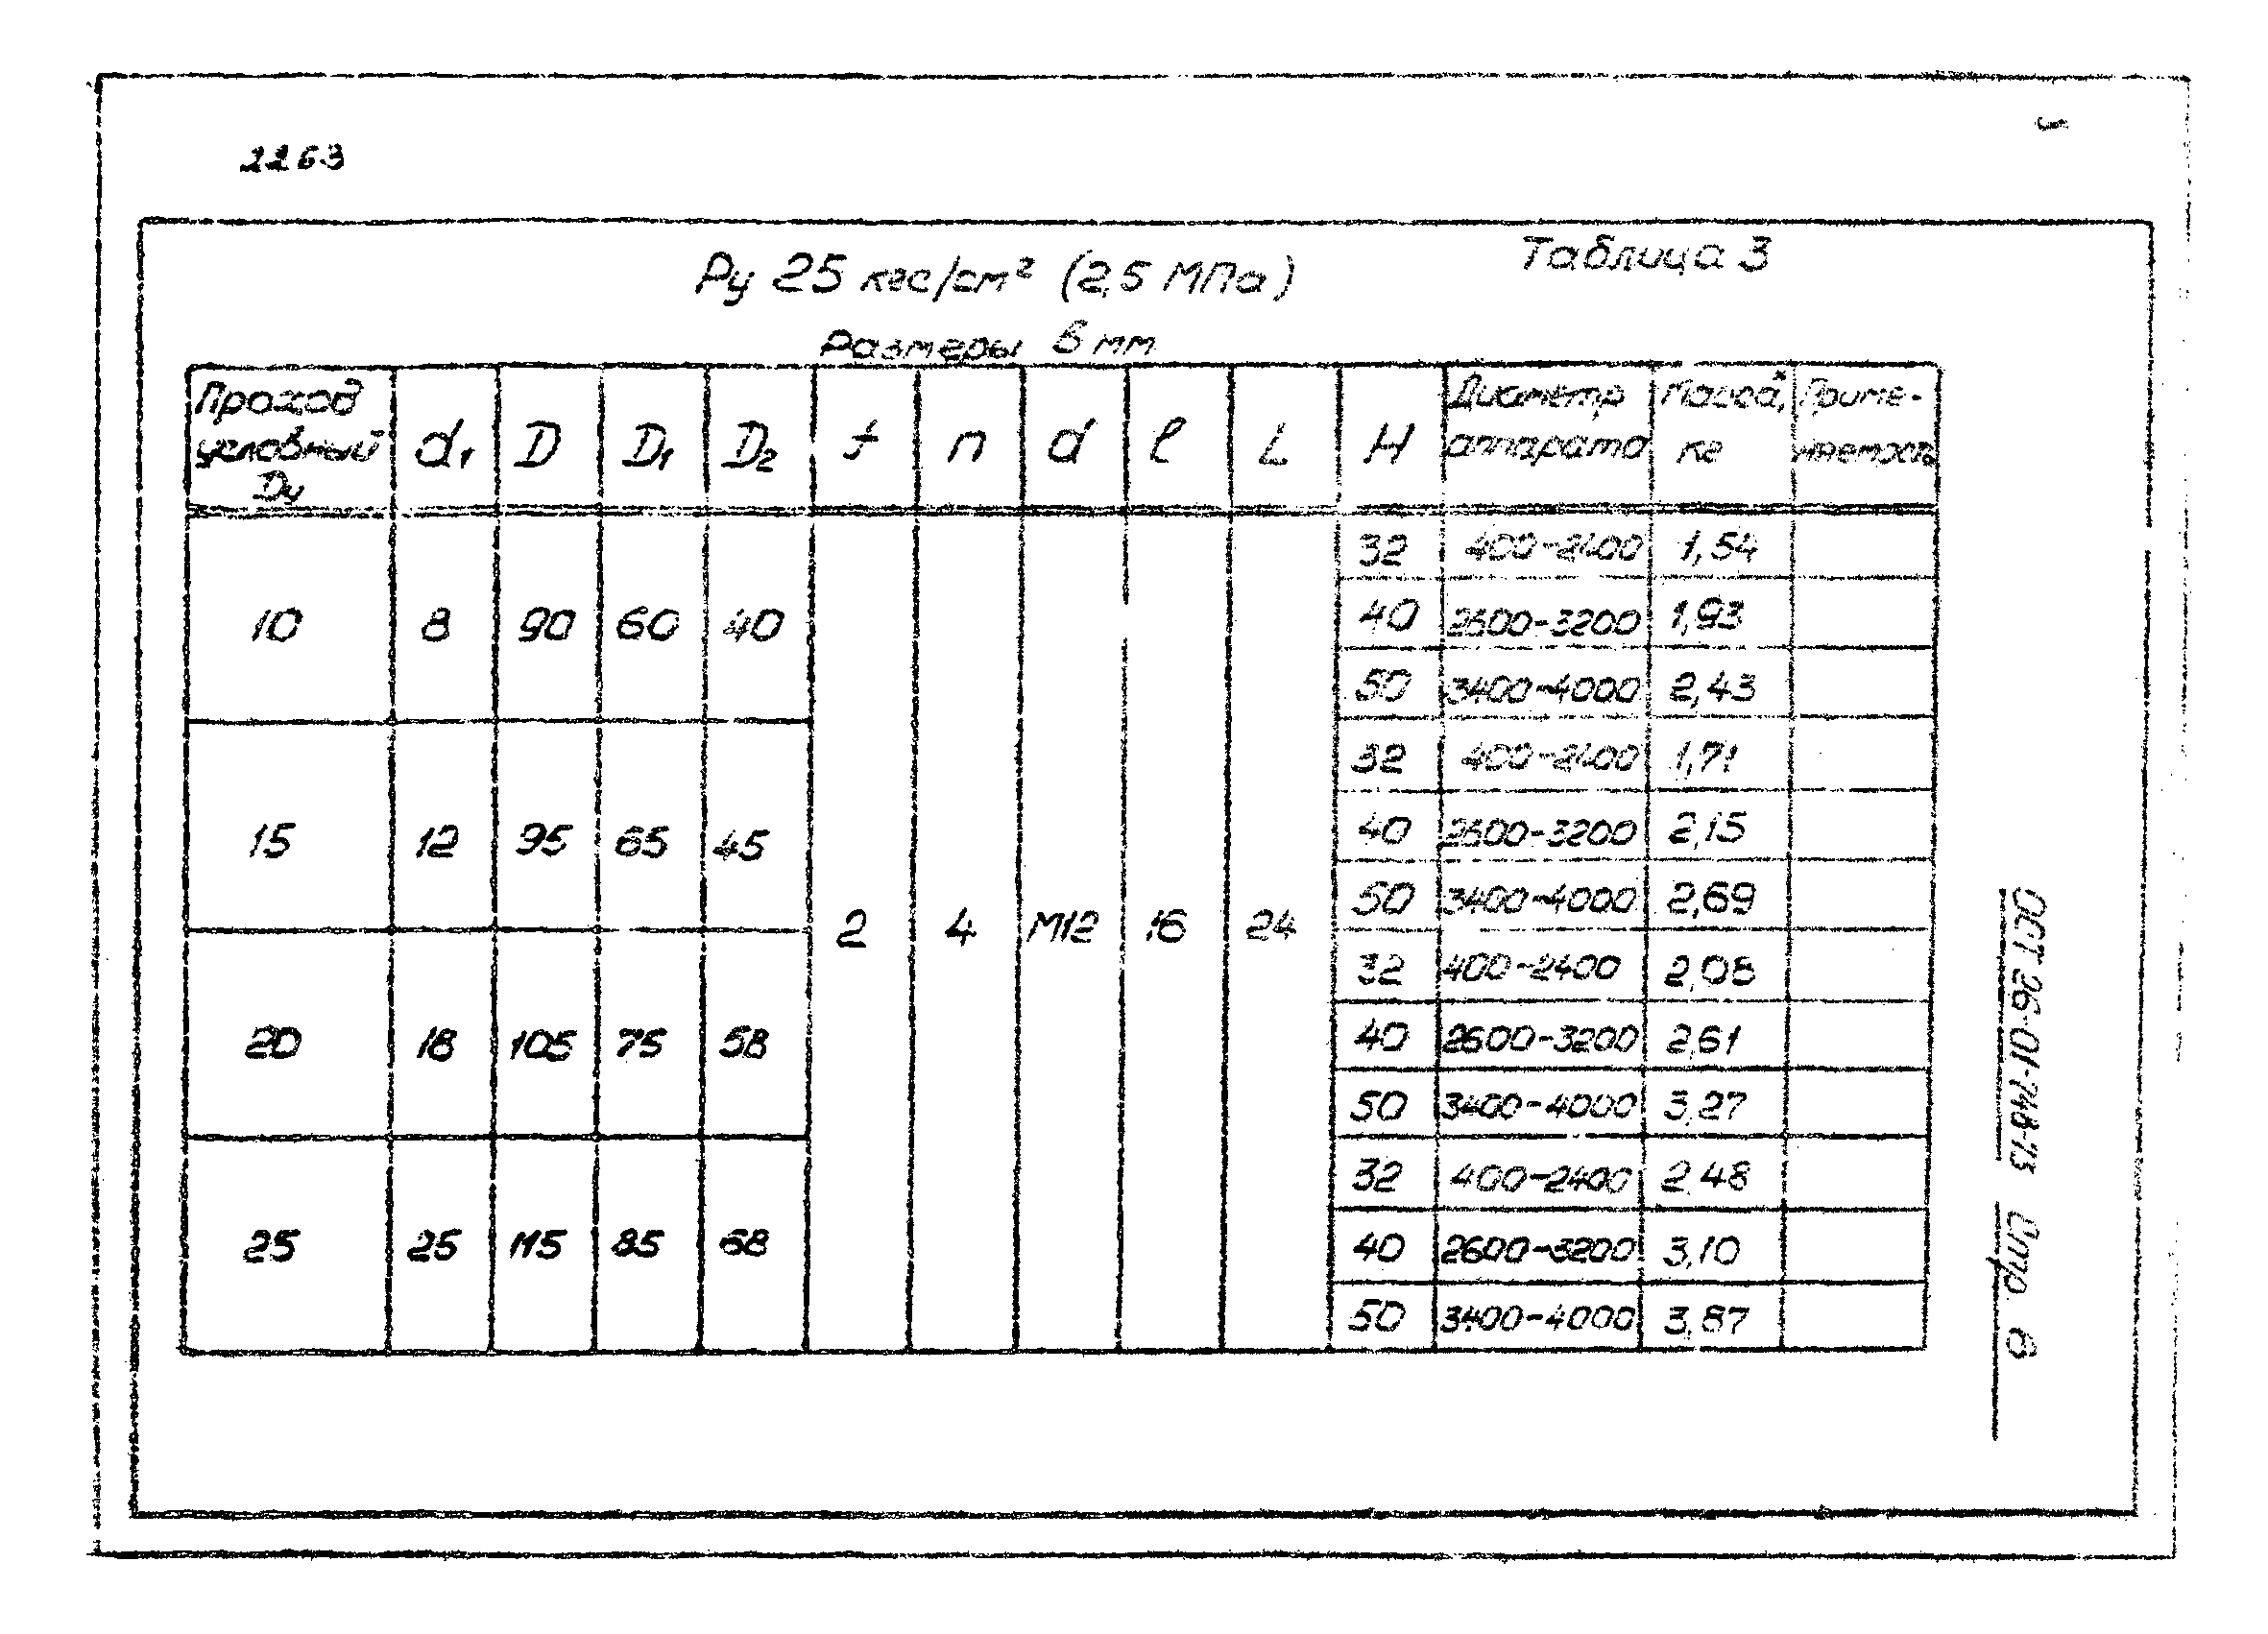 2263
Таблица 3
Ру 25 кгс/см² (2,5 МПа)
Размеры в мм
Проход условный Ду | d₁ | D | D₁ | D₂ | t | n | d | ℓ | L | H | Диаметр аппарата | Масса*, кг | Приме-няемость
10 | 8 | 90 | 60 | 40 | 2 | 4 | М12 | 16 | 24 | 32 | 400-2400 | 1,54
40 | 2600-3200 | 1,93
50 | 3400-4000 | 2,43
15 | 12 | 95 | 65 | 45 | 32 | 400-2400 | 1,71
40 | 2600-3200 | 2,15
50 | 3400-4000 | 2,69
20 | 18 | 105 | 75 | 58 | 32 | 400-2400 | 2,08
40 | 2600-3200 | 2,61
50 | 3400-4000 | 3,27
25 | 25 | 115 | 85 | 68 | 32 | 400-2400 | 2,48
40 | 2600-3200 | 3,10
50 | 3400-4000 | 3,87
ОСТ 26-01-748-73 Стр. 6